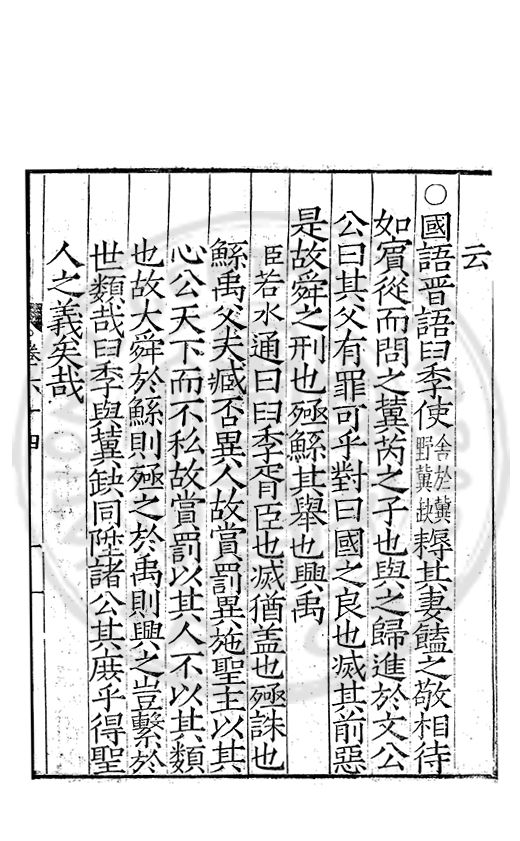 云
○國語晋語曰季使舍於冀野冀缺耨其妻饁之敬相待
如賓從而問之冀芮之子也與之歸進於文公
公曰其父有罪可乎對曰國之良也滅其前惡
是故舜之刑也殛鯀其舉也興禹
臣若水通曰曰季胥臣也滅猶盖也殛誅也
鯀禹父夫臧否異人故賞罰異施聖主以其
心公天下而不私故賞罰以其人不以其類
也故大舜於鯀則殛之於禹則興之豈繫於
世類哉曰季與冀缺同陞諸公其庶乎得聖
人之義矣哉
卷六十四